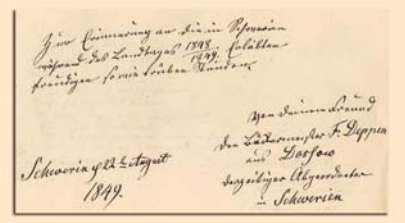 Zur Erinnerung an die in Schwerin
während des Landtages 1848/1849. Erlebten
freudigen sowie trüben Stunden
Von deinem Freund
den Bäckermeister F. Deppen
aus Dassow
derzeitiger Abgeordneter
in Schwerien
Schwerin d 22t August
1849.